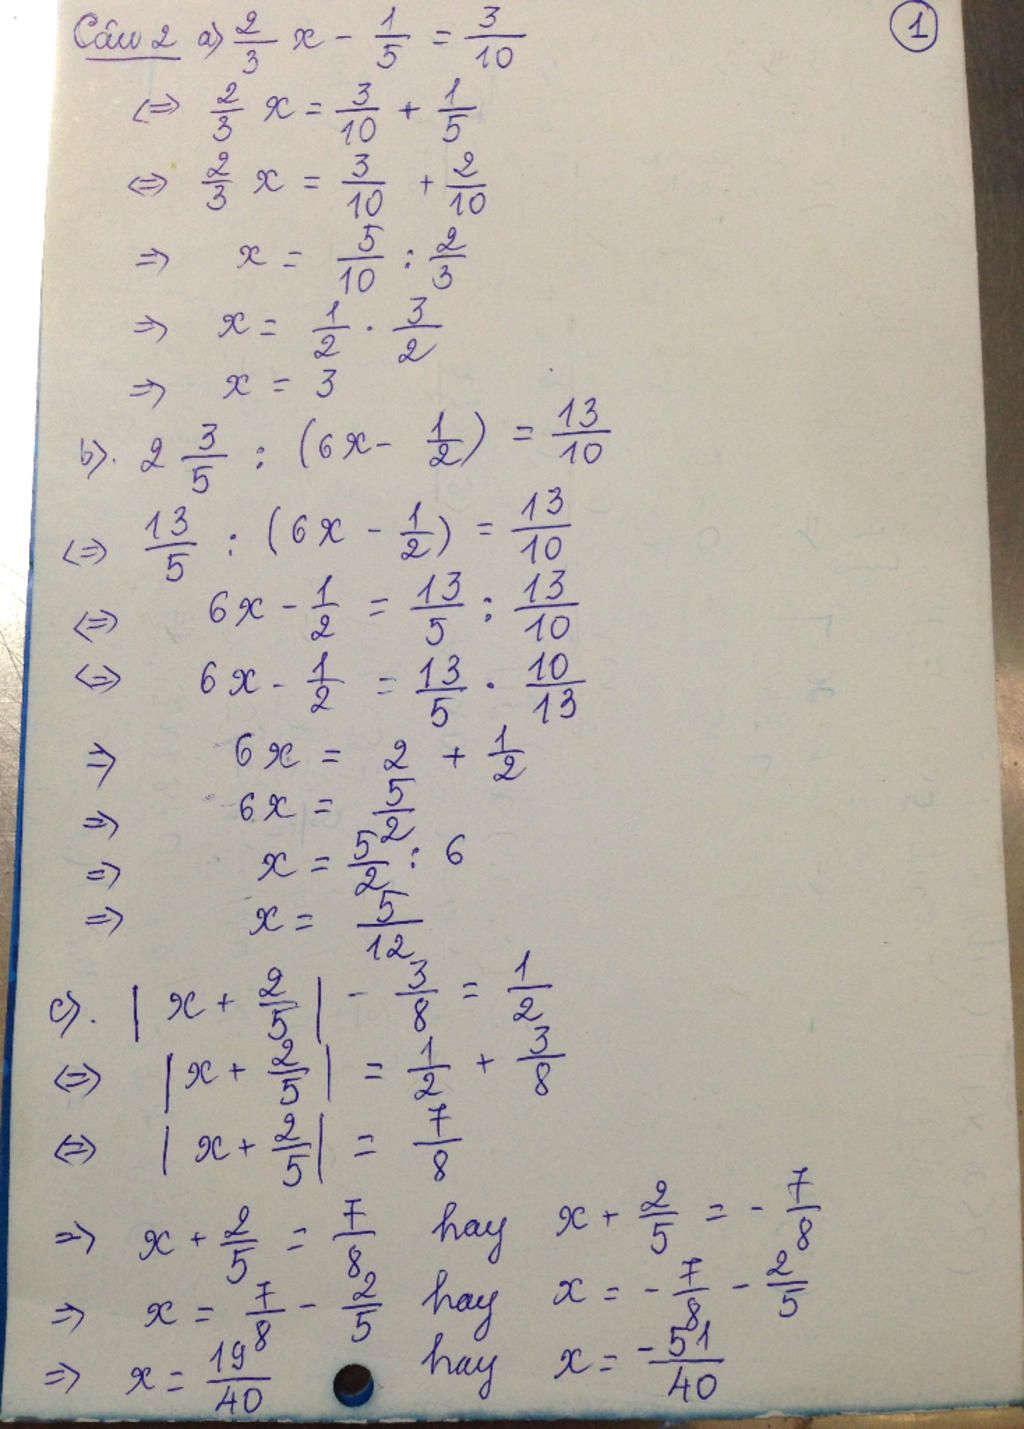 Câu 2 a) 2/3 x - 1/5 = 3/10
①
⇔ 2/3 x = 3/10 + 1/5
⇔ 2/3 x = 3/10 + 2/10
⇒ x = 5/10 : 2/3
⇒ x = 1/2 . 3/2
⇒ x = 3
b). 2 3/5 : (6x - 1/2) = 13/10
⇔ 13/5 : (6x - 1/2) = 13/10
⇔ 6x - 1/2 = 13/5 : 13/10
⇔ 6x - 1/2 = 13/5 . 10/13
⇒ 6x = 2 + 1/2
⇒ 6x = 5/2
⇒ x = 5/2 : 6
⇒ x = 5/12
c). |x + 2/5| - 3/8 = 1/2
⇔ |x + 2/5| = 1/2 + 3/8
⇔ |x + 2/5| = 7/8
⇒ x + 2/5 = 7/8 hay x + 2/5 = - 7/8
⇒ x = 7/8 - 2/5 hay x = - 7/8 - 2/5
⇒ x = 19/40 hay x = -51/40